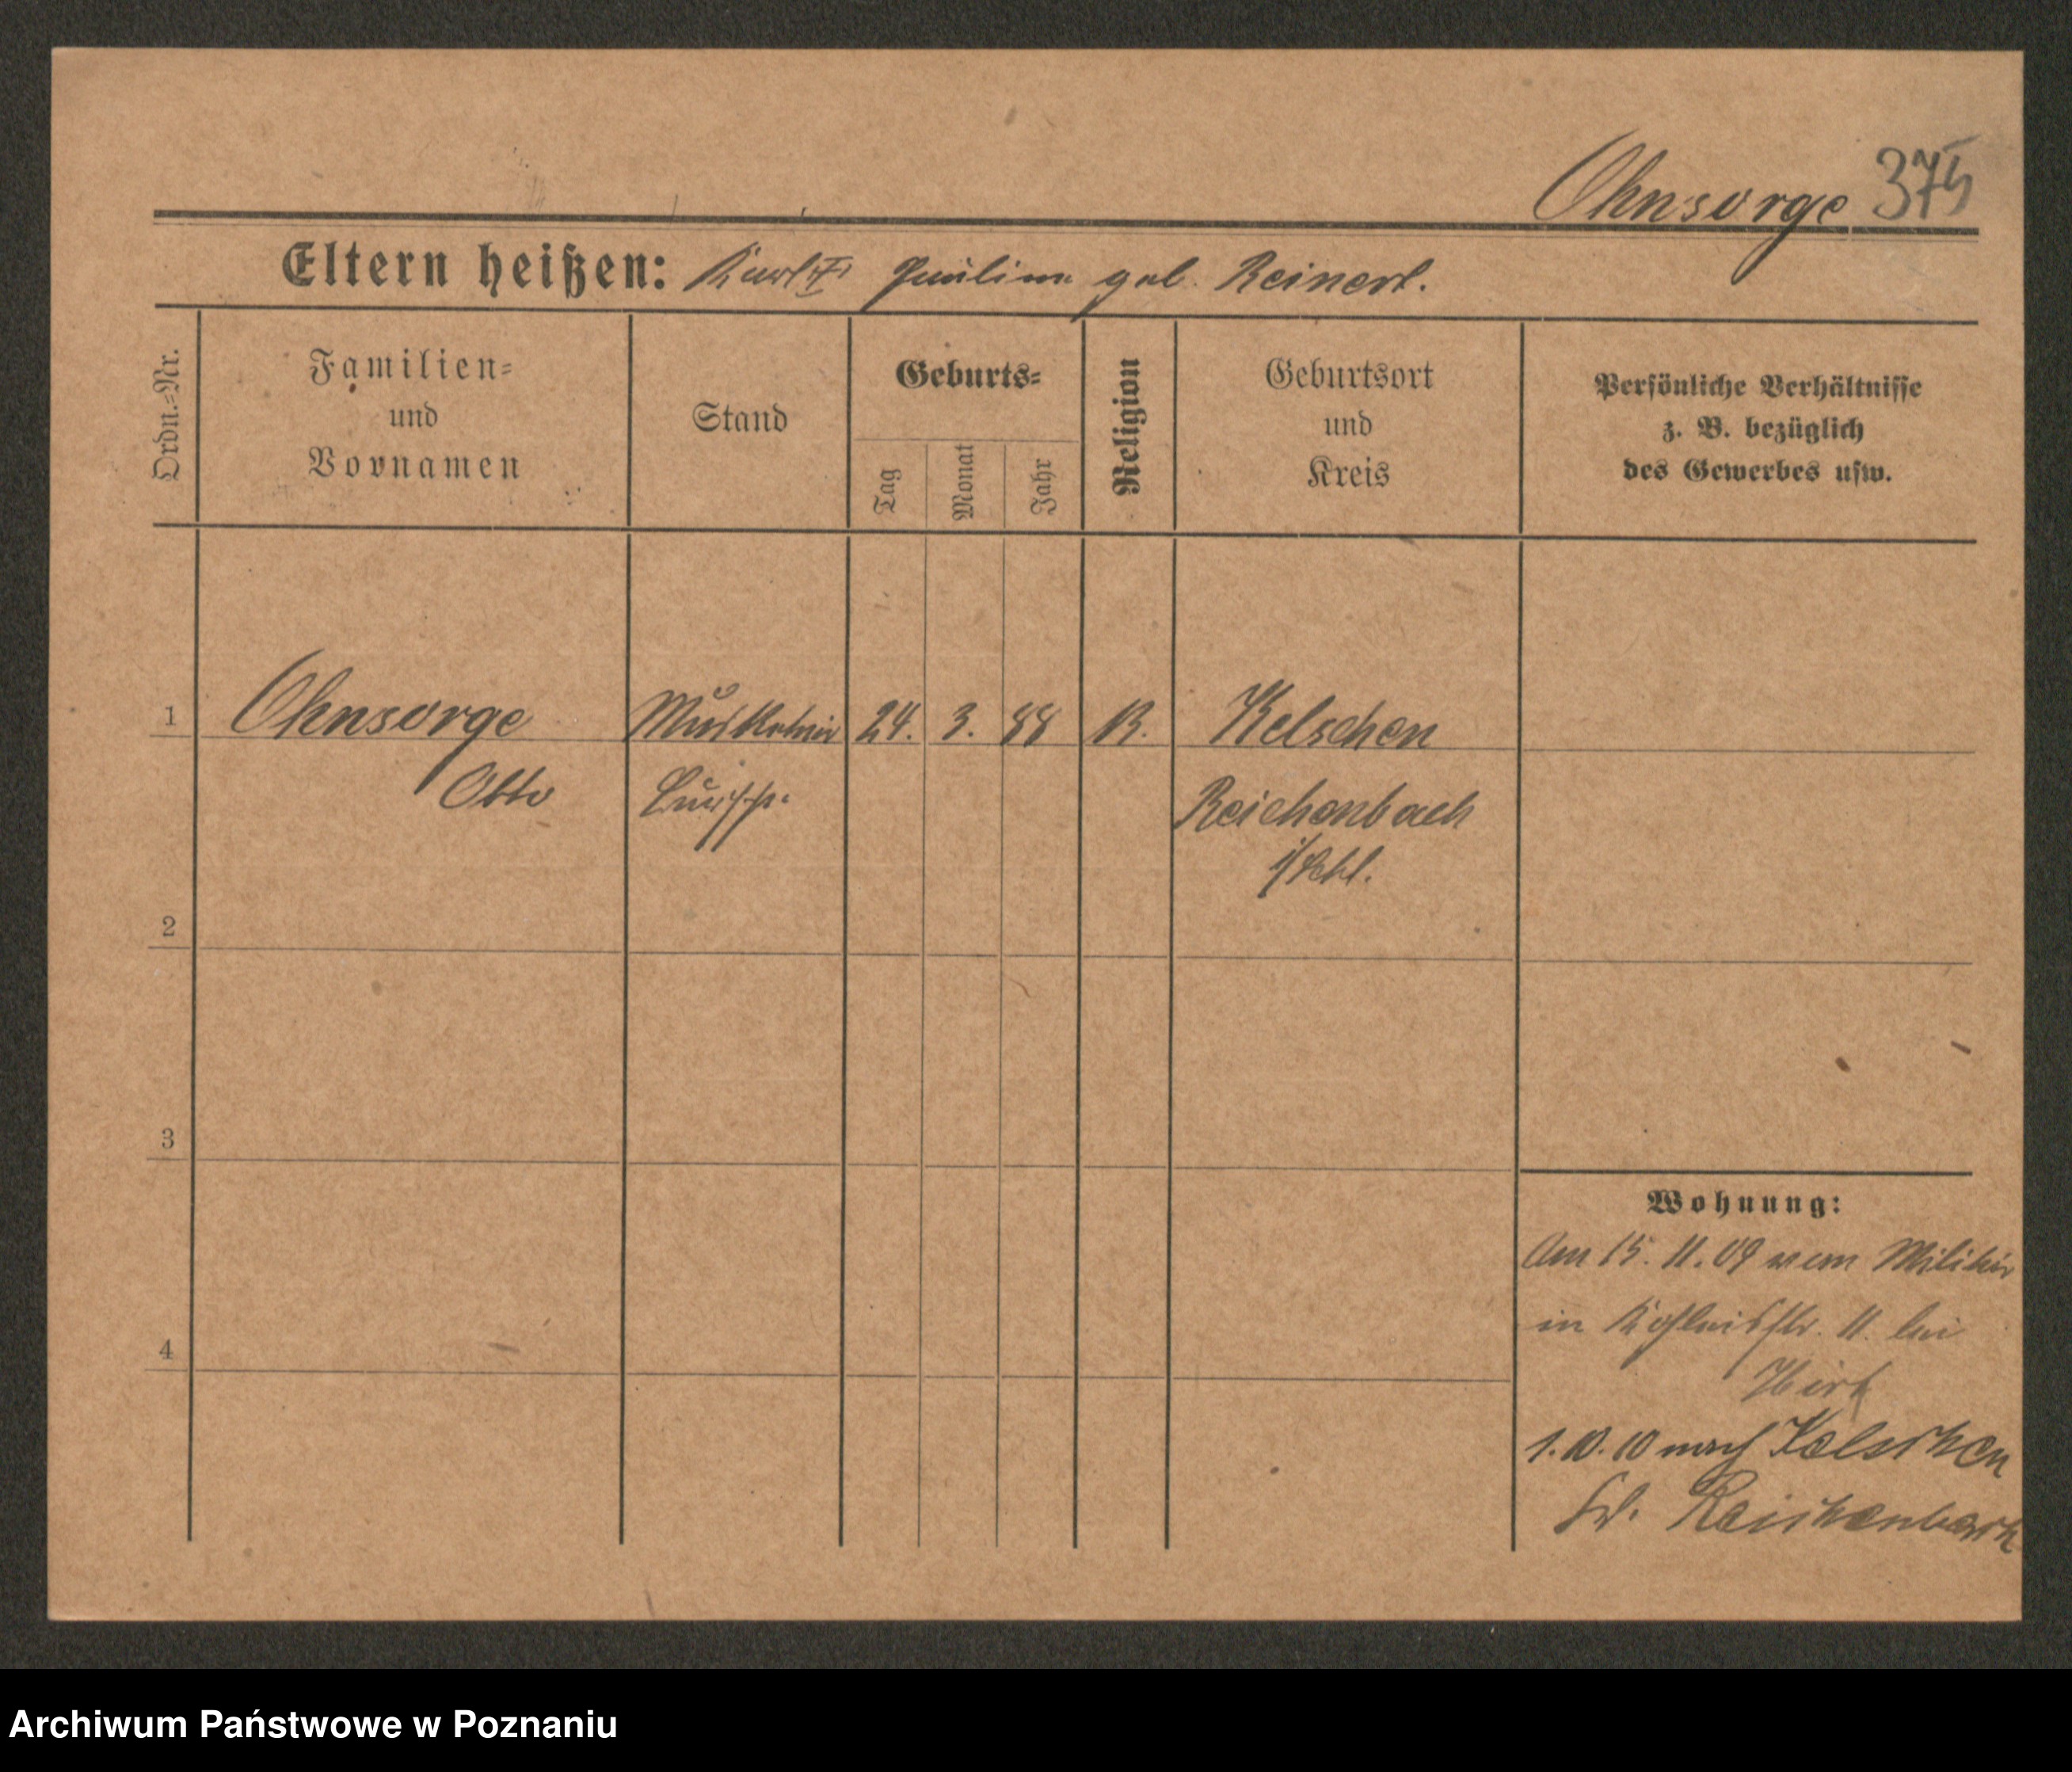 Ohnsorge 375
Eltern heißen: Karl Pauline geb. Reinert.
Ordn.-Nr.
Familien-
und
Vornamen
Stand
Geburts-
Tag
Monat
Jahr
Religion
Geburtsort
und
Kreis
Persönliche Verhältnisse
z. B. bezüglich
des Gewerbes usw.
1 Ohnsorge Musketier 24. 3. 88 K. Kelschen
Otto Reichenbach
i/Schl.
2
3
4
Wohnung:
Am 15. 11. 09 vom Militär
in 11. bei
Hirt
1. 10. 10 nach Kelschen
Reichenbach
Archiwum Państwowe w Poznaniu